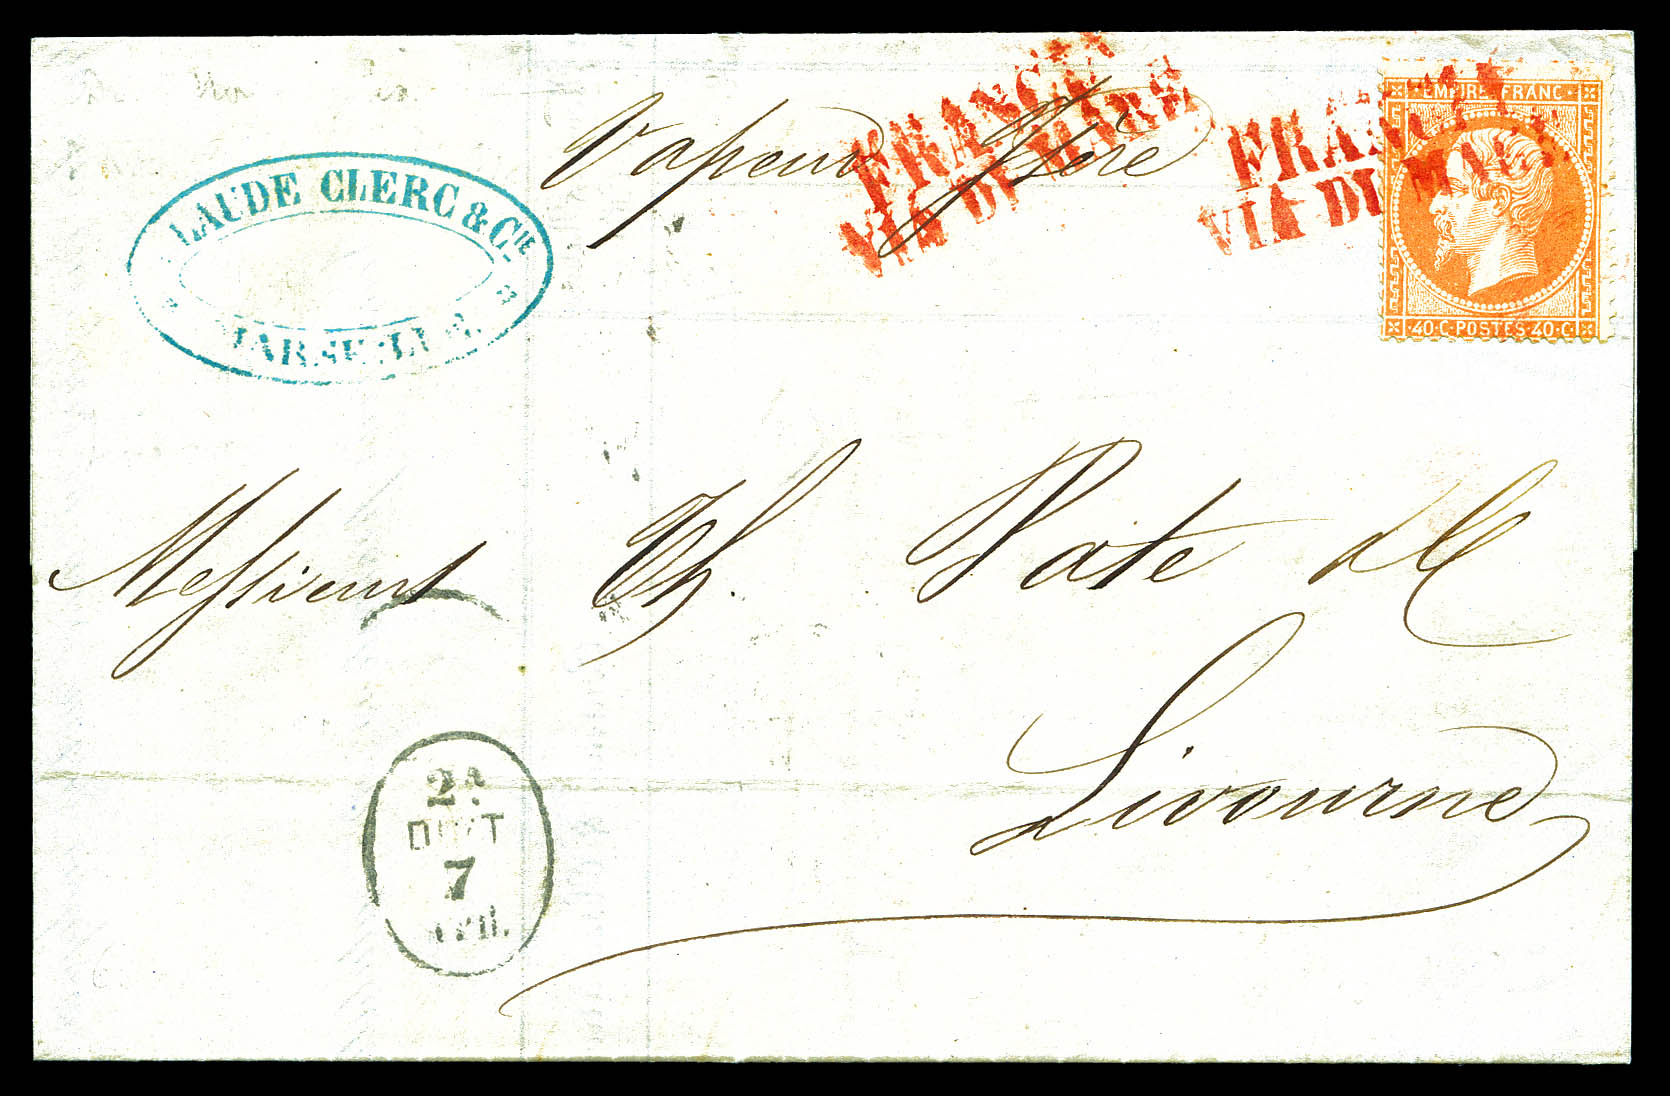 LAUDE CLERC & CIE
MARSEILLE
Vapeur Isère
FRANCIA
VIA DI MARE
FRANCIA
VIA DI MARE
EMPIRE FRANC
40 · C · POSTES · 40 · C
Messieurs Th. Pate & C
Livourne
2A
DIST
7